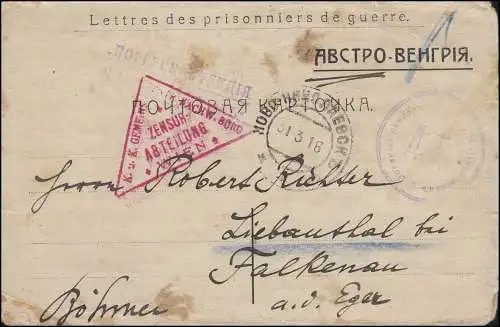 Lettres des prisonniers de guerre.
АВСТРО-ВЕНГРІЯ.
ПОЧТОВАЯ КАРТОЧКА.
K. u. K. GEMEINS.
ZENSUR-
ABTEILUNG
WIEN
31 3 16
Herrn Robert Richter
Liebauthal bei
Falkenau
a. d. Eger
Böhmen